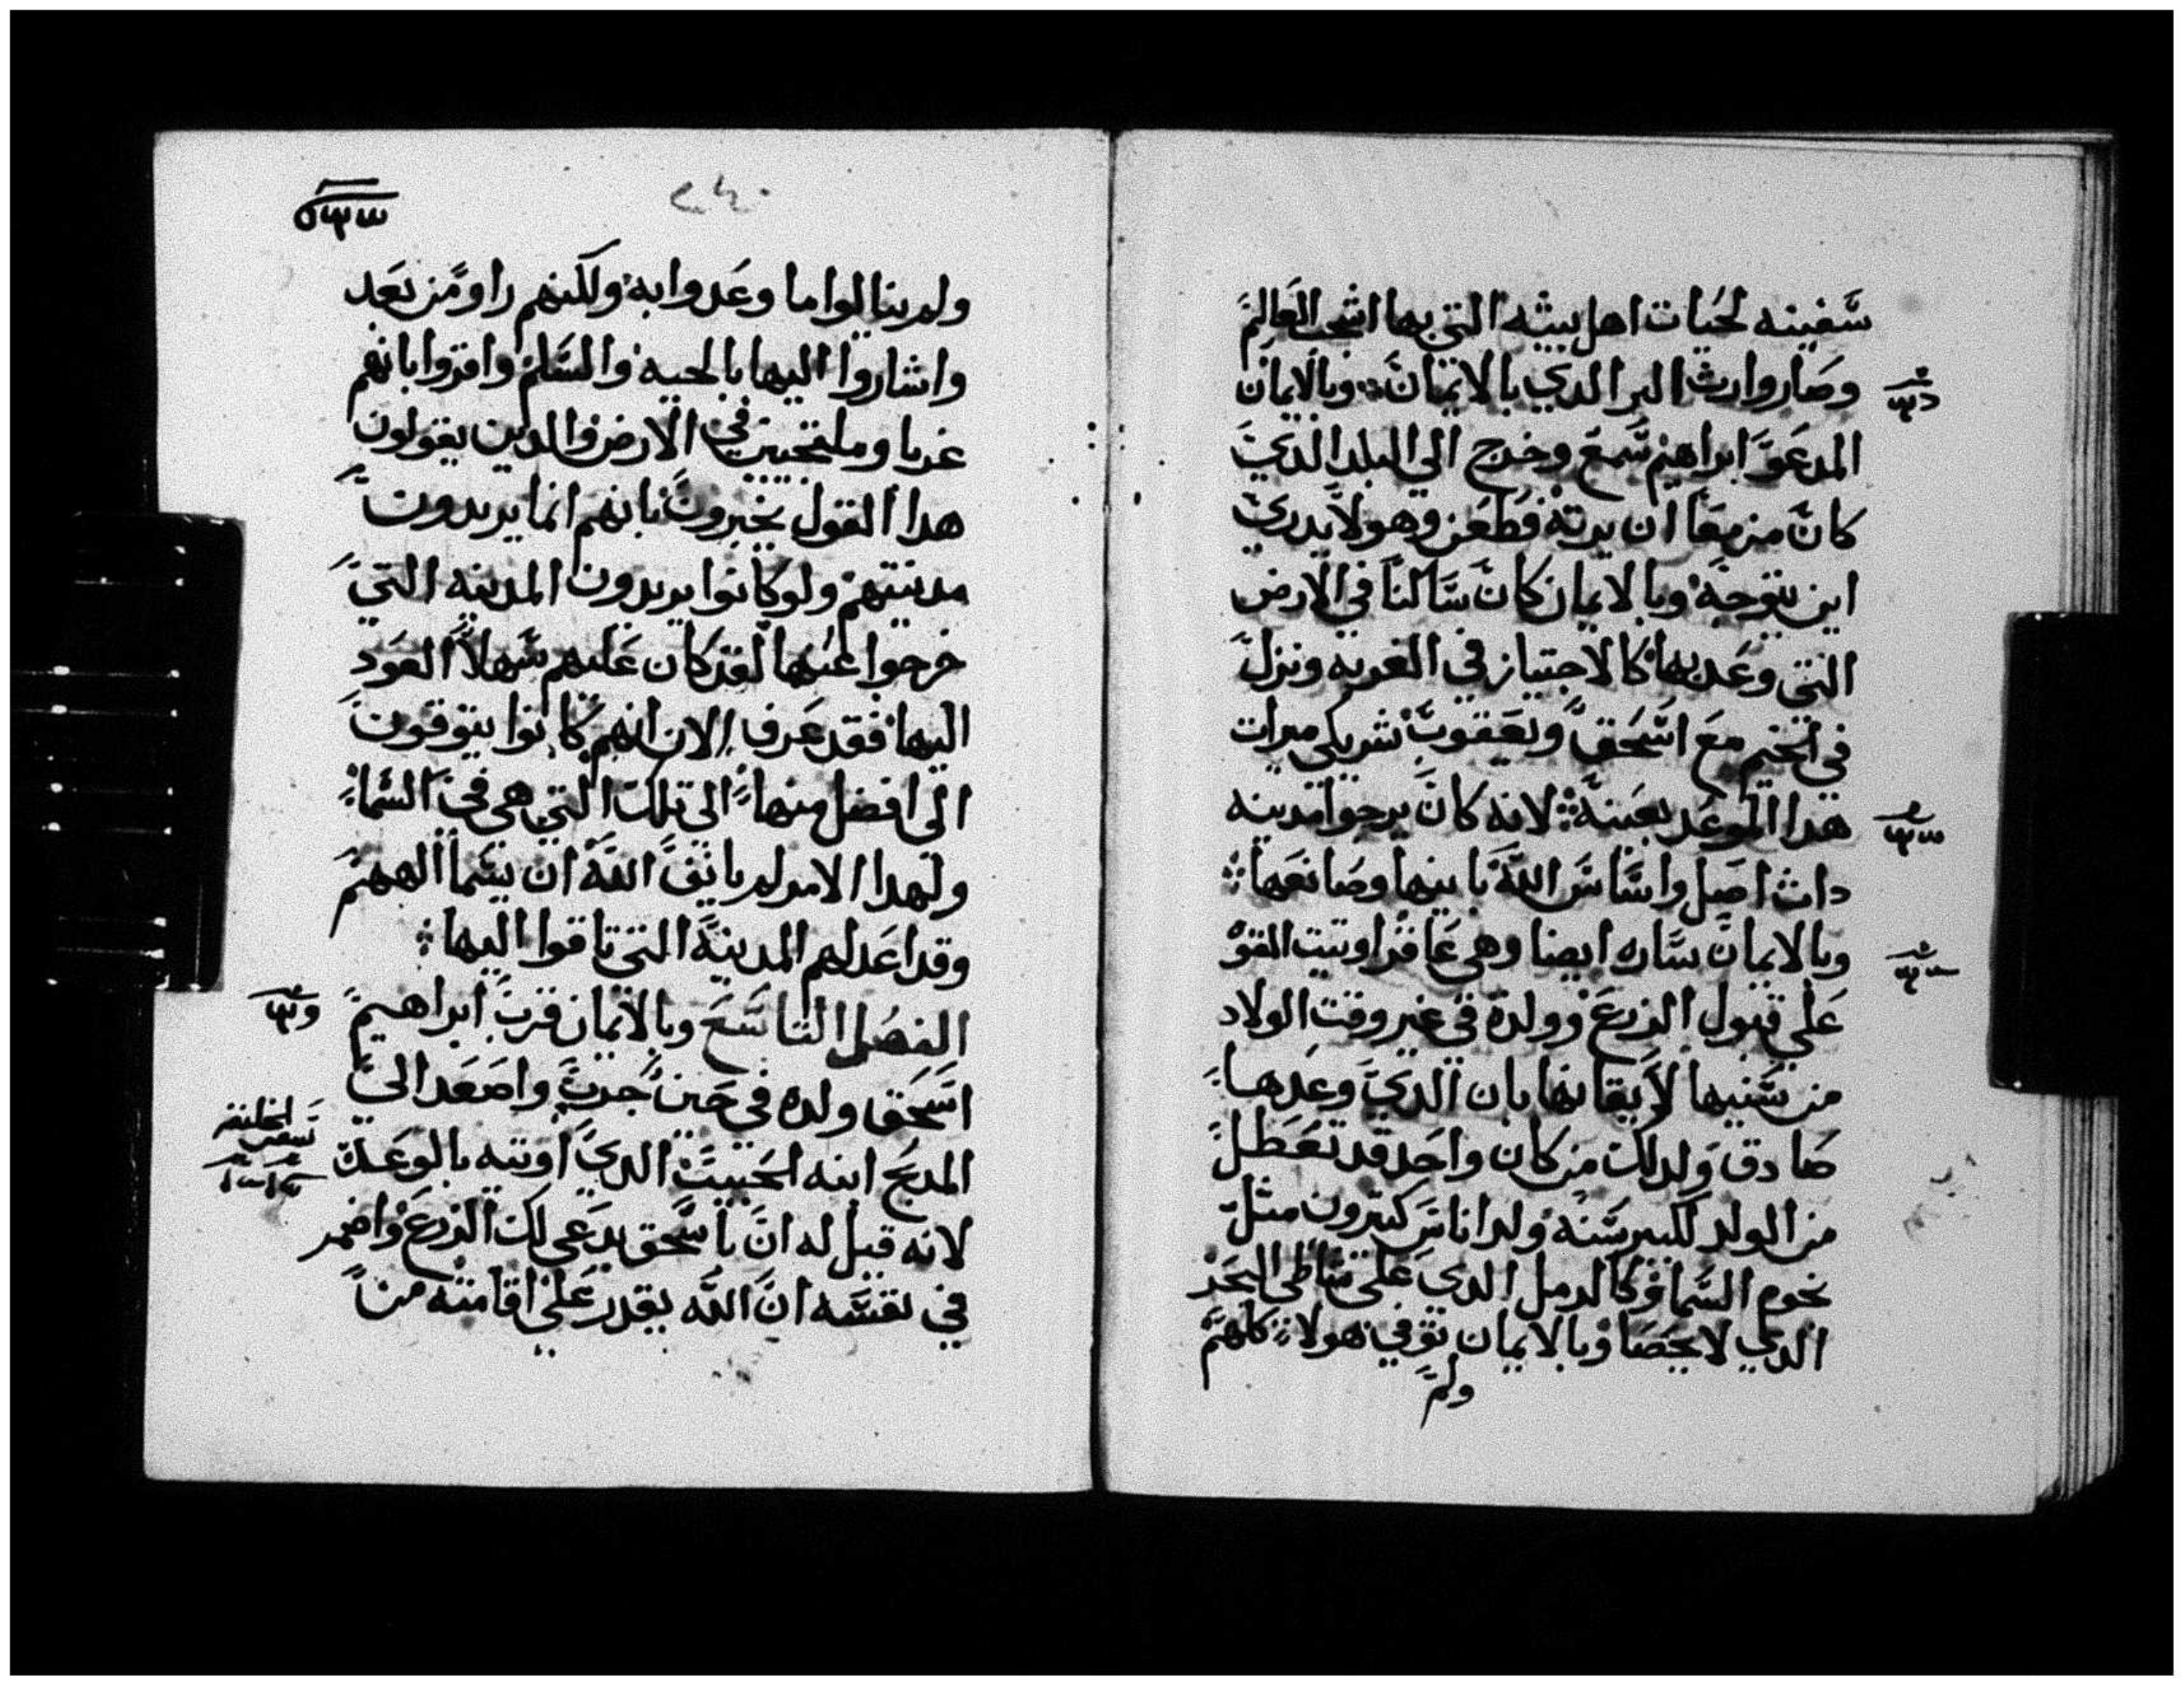 سفينه لحيات اهل بيته التي بها اشجب العالم
وصار وارث البر الدي بالايمان وبالايمان
المدعو ابراهيم سمع وخرج الي البلد الدي
كان مزمعا ان يرته فطعن وهو لا يدري
اين يتوجه وبالايمان كان ساكنا في الارض
التي وعد بها كالاجتياز في الغربه ونزل
في الخيم مع اسحق ويعقوب شريكي ميرات
هدا الموعد بعينه لانه كان يرجوا مدينه
دات اصل واساس الله بانيها وصانعها
وبالايمان ساره ايضا وهي عاقرا اوتيت القوه
علي قبول الزرع وولده في غير وقت الولاد
من سنيها لايقانها بان الدي وعدها
صادق ولدلك من كان واحد قد تعطل
من الولد لكبر سنه ولد اناس كتيرون متل
نجوم السما وكالرمل الدي علي شاطي البحر
الدي لا يحصا وبالايمان توفي هولا كلهم
ولم
ولم ينالوا ما وعدوا به ولكنهم راوه من بعد
واشاروا اليها بالحيه والسلم واقروا بانهم
غربا وملتجين في الارض والدين يقولون
هدا القول يخبرون بانهم انما يريدون
مدينتهم ولو كانوا يريدون المدينه التي
خرجوا عنها لقد كان عليهم سهلا العود
اليها فقد عرف الان انهم كانوا يتوقون
الي افضل منها الي تلك التي هي في السما
ولهدا الامر لم يانف الله ان يسما الههم
وقد اعد لهم المدينه التي تاقوا اليها
الفصل التاسع وبالايمان قرب ابراهيم
اسحق ولده في حين جرب واصعد الي
المدبح ابنه الحبيب الدي اوتيه بالوعد
لانه قيل له ان باسحق يدعي لك الزرع واضمر
في نفسه ان الله يقدر علي اقامته من